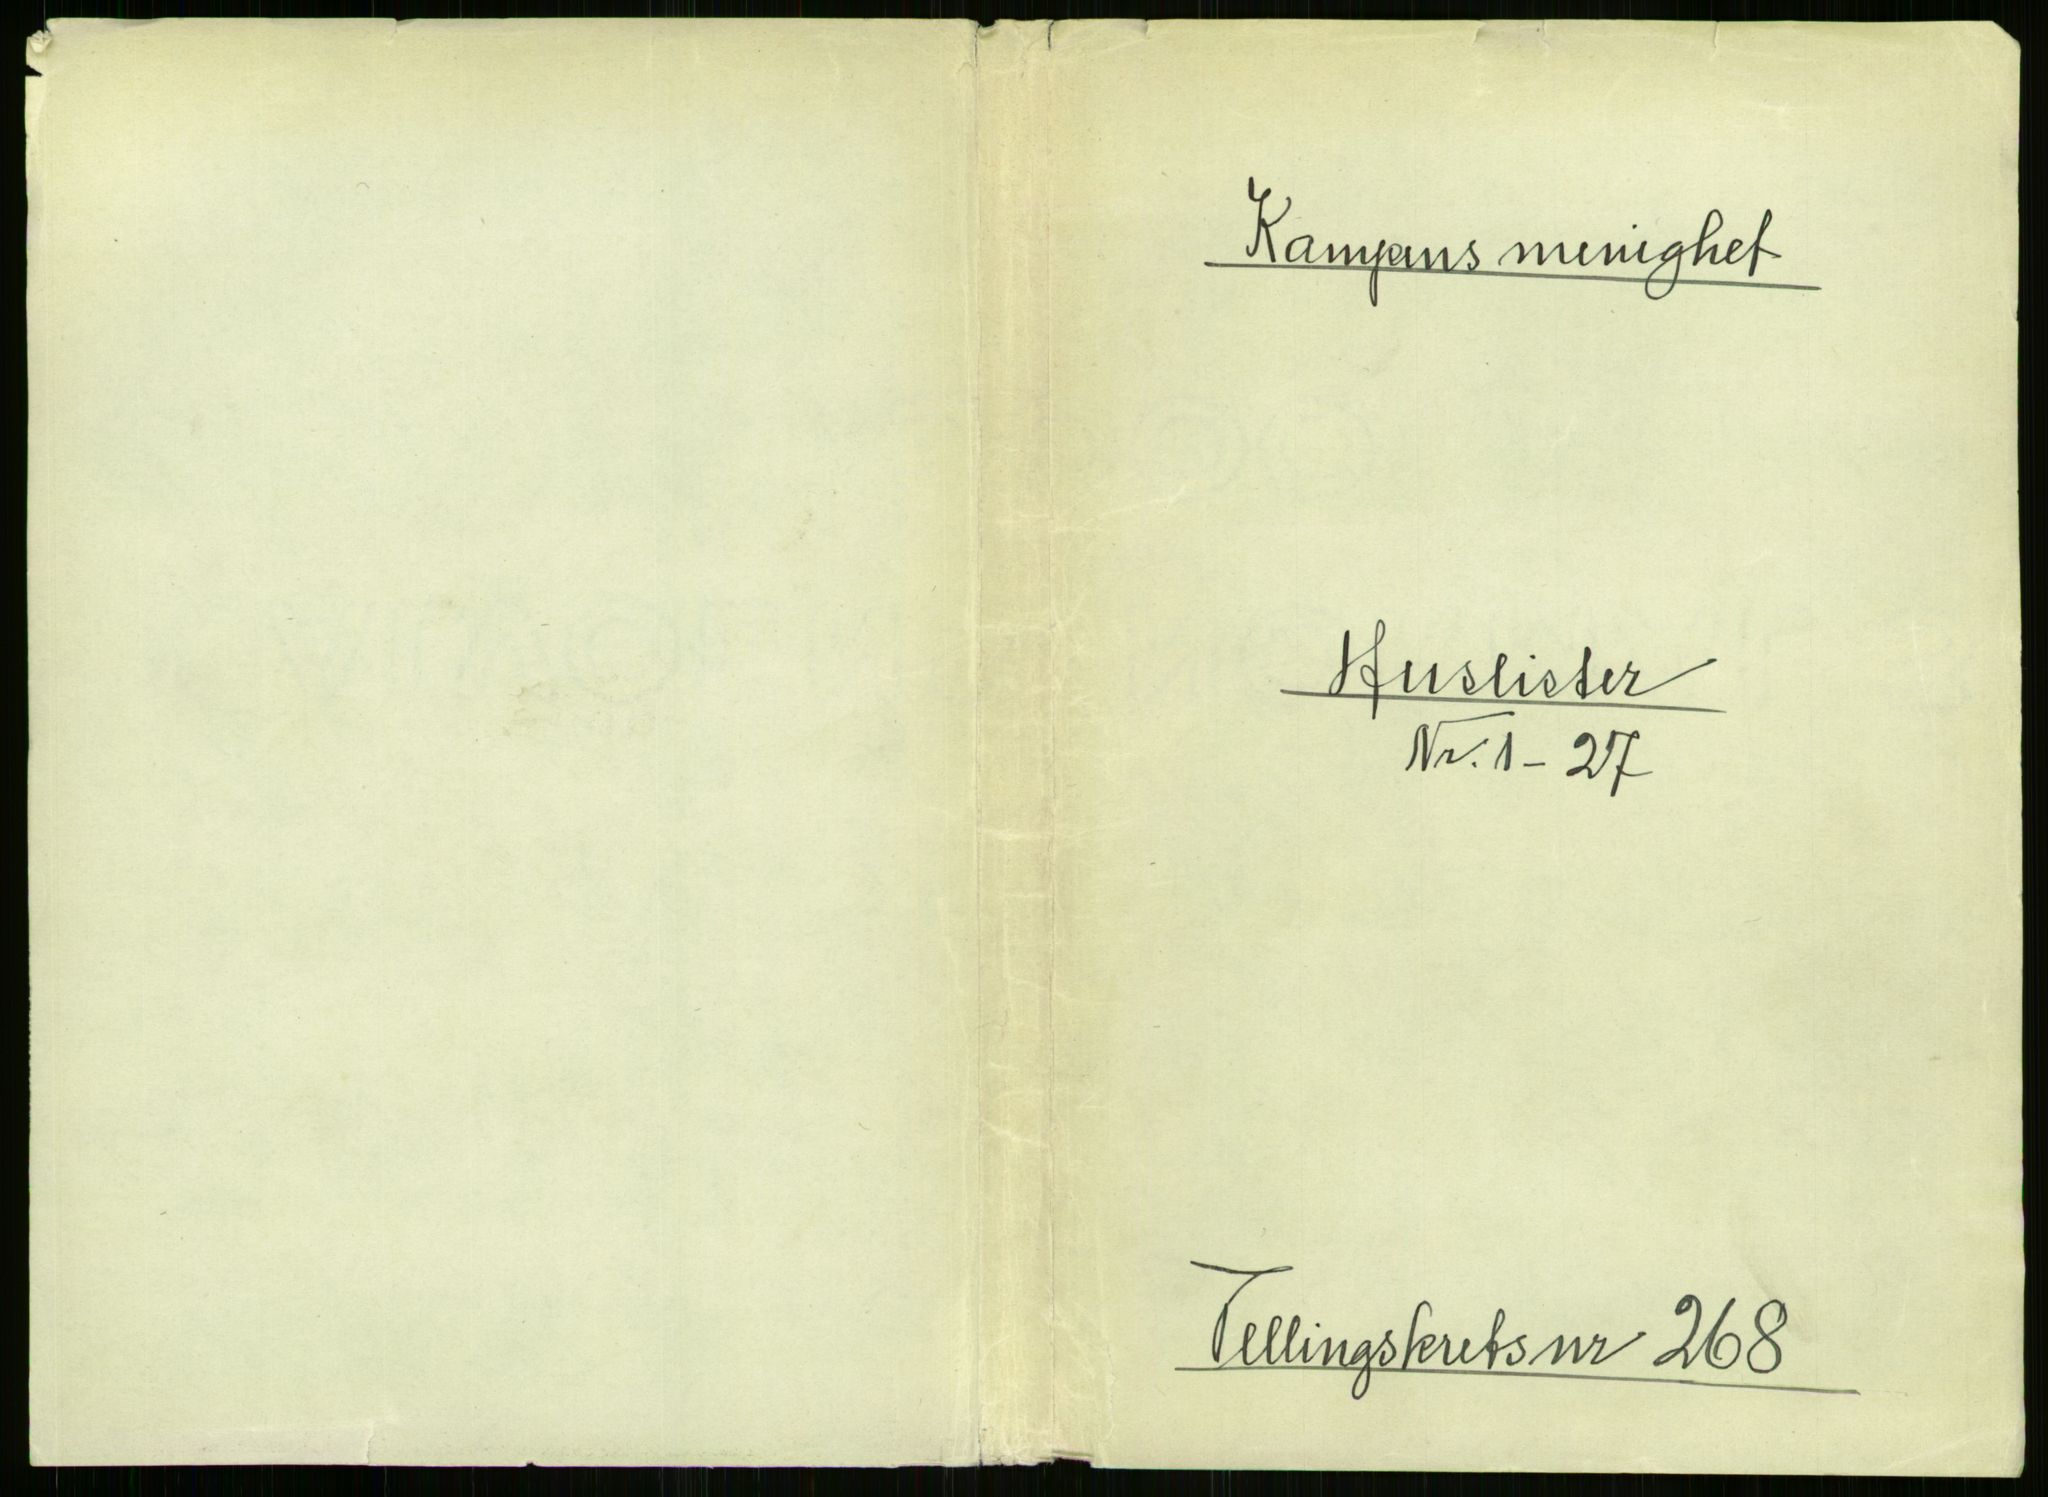 Kampens menighet
Huslister
Nr. 1 - 27
Tellingskrets nr 268